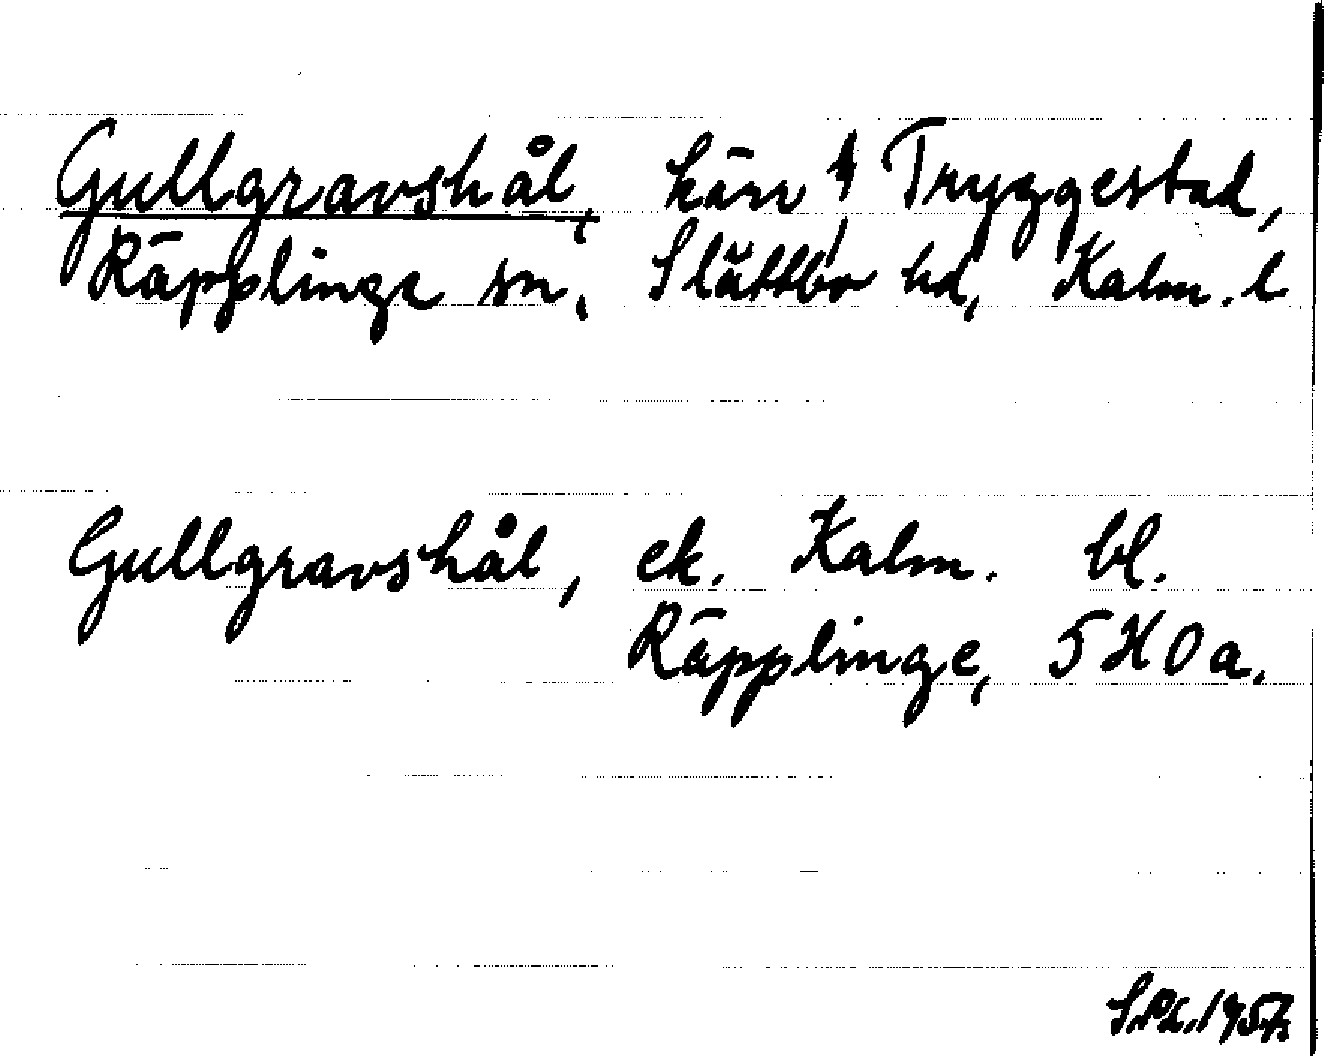 Gullgravshål, kärr f Tryggestad,
Räpplinge sn, Slättbo hd, Kalm. l
Gullgravshål, ek. Kalm. bl.
Räpplinge, 5 H 0 a.
1957